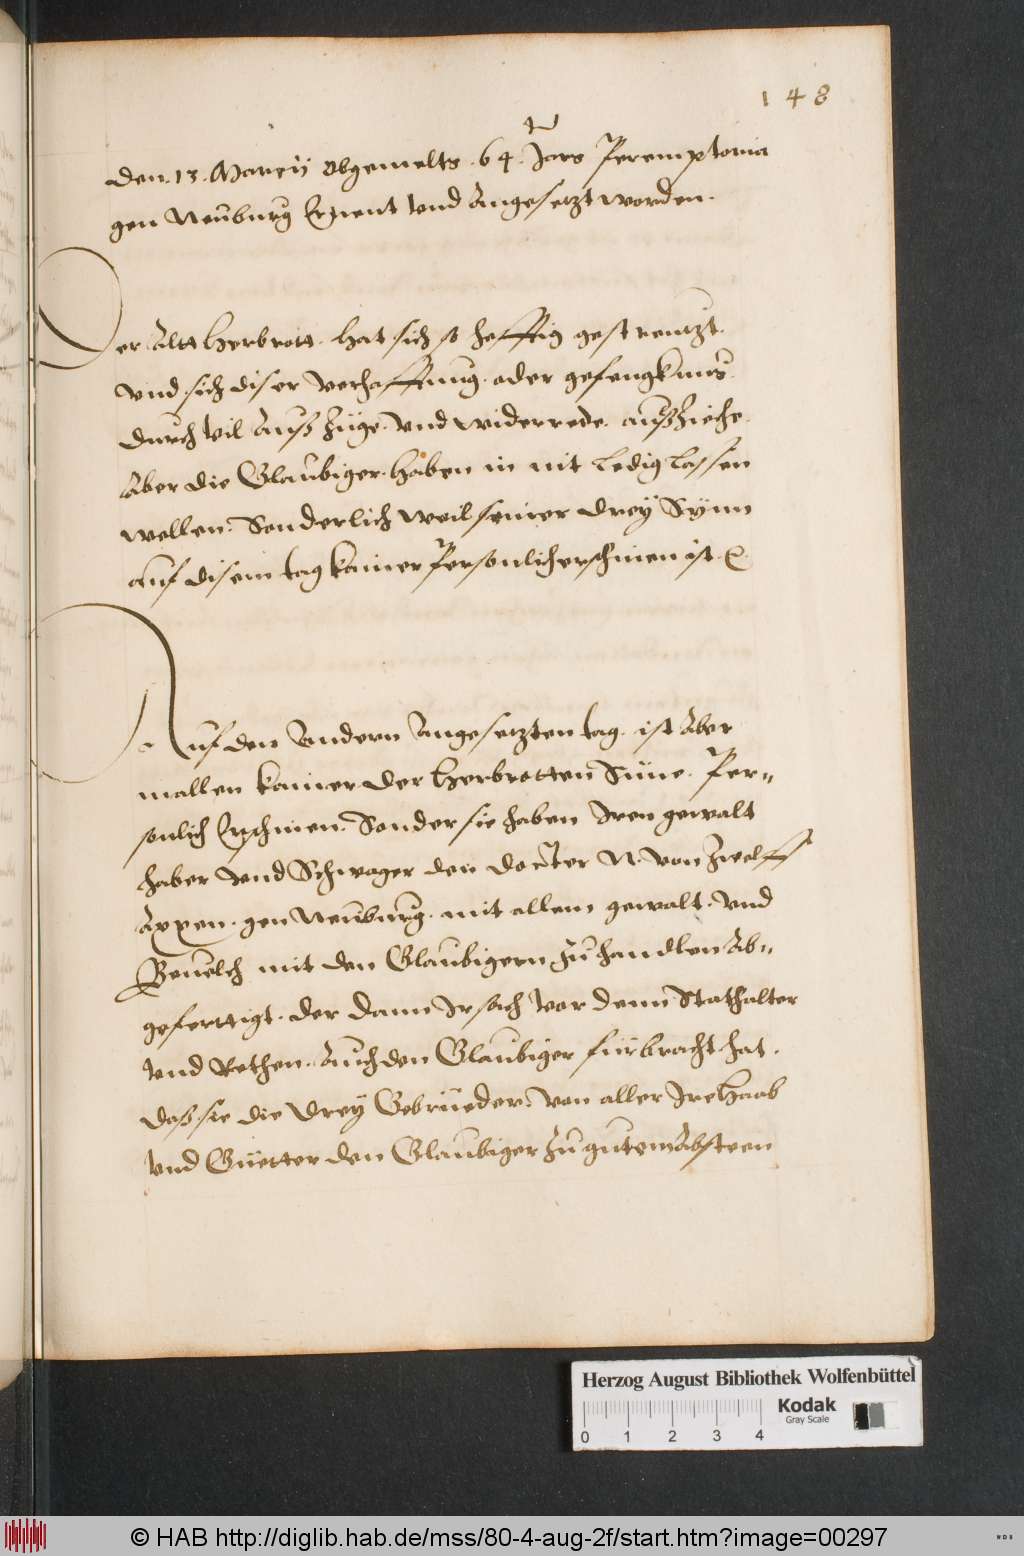 148
den .13. Marcij obgemelts .64. Jars Peremptoria
gen Neüburg Ernent vnd Angesetzt worden.
Der Altt Herbrott. hat sich so hefftig gestreüczt.
vnd sich diser verhafftung. oder gefengknüs.
dürch vil Auß Züge. vnd widerrede. aüßZiehe.
Aber die Glaübiger. haben in nit ledig lassen
wellen. Sonderlich weil seiner drey Sünn
auf disem tag kainer Personlich erschinen ist.
Auf den Andern Angesetzten tag. ist Aber
mallen kainer der Herbrotten Süne. Per-
sonlich Erschinen. Sonder sie haben Iren gewalt
haber vnd Schwager den Docter N. von Zwelff
Axxen. gen Neüburg. mit allem gewalt. vnd
Beuelch mit den Glaübigern Zü handlen Ab-
geferttigt. der dann Ir sach vor denn Stathalter
vnd Rethen. Aüch den Glaübiger fürbracht hat.
daß sie die drey Gebrüeder. von aller Ire Haab
vnd Güetter den Glaübiger Zü gütem Absteen
Herzog August Bibliothek Wolfenbüttel
Kodak
Gray Scale
0 1 2 3 4
© HAB http://diglib.hab.de/mss/80-4-aug-2f/start.htm?image=00297